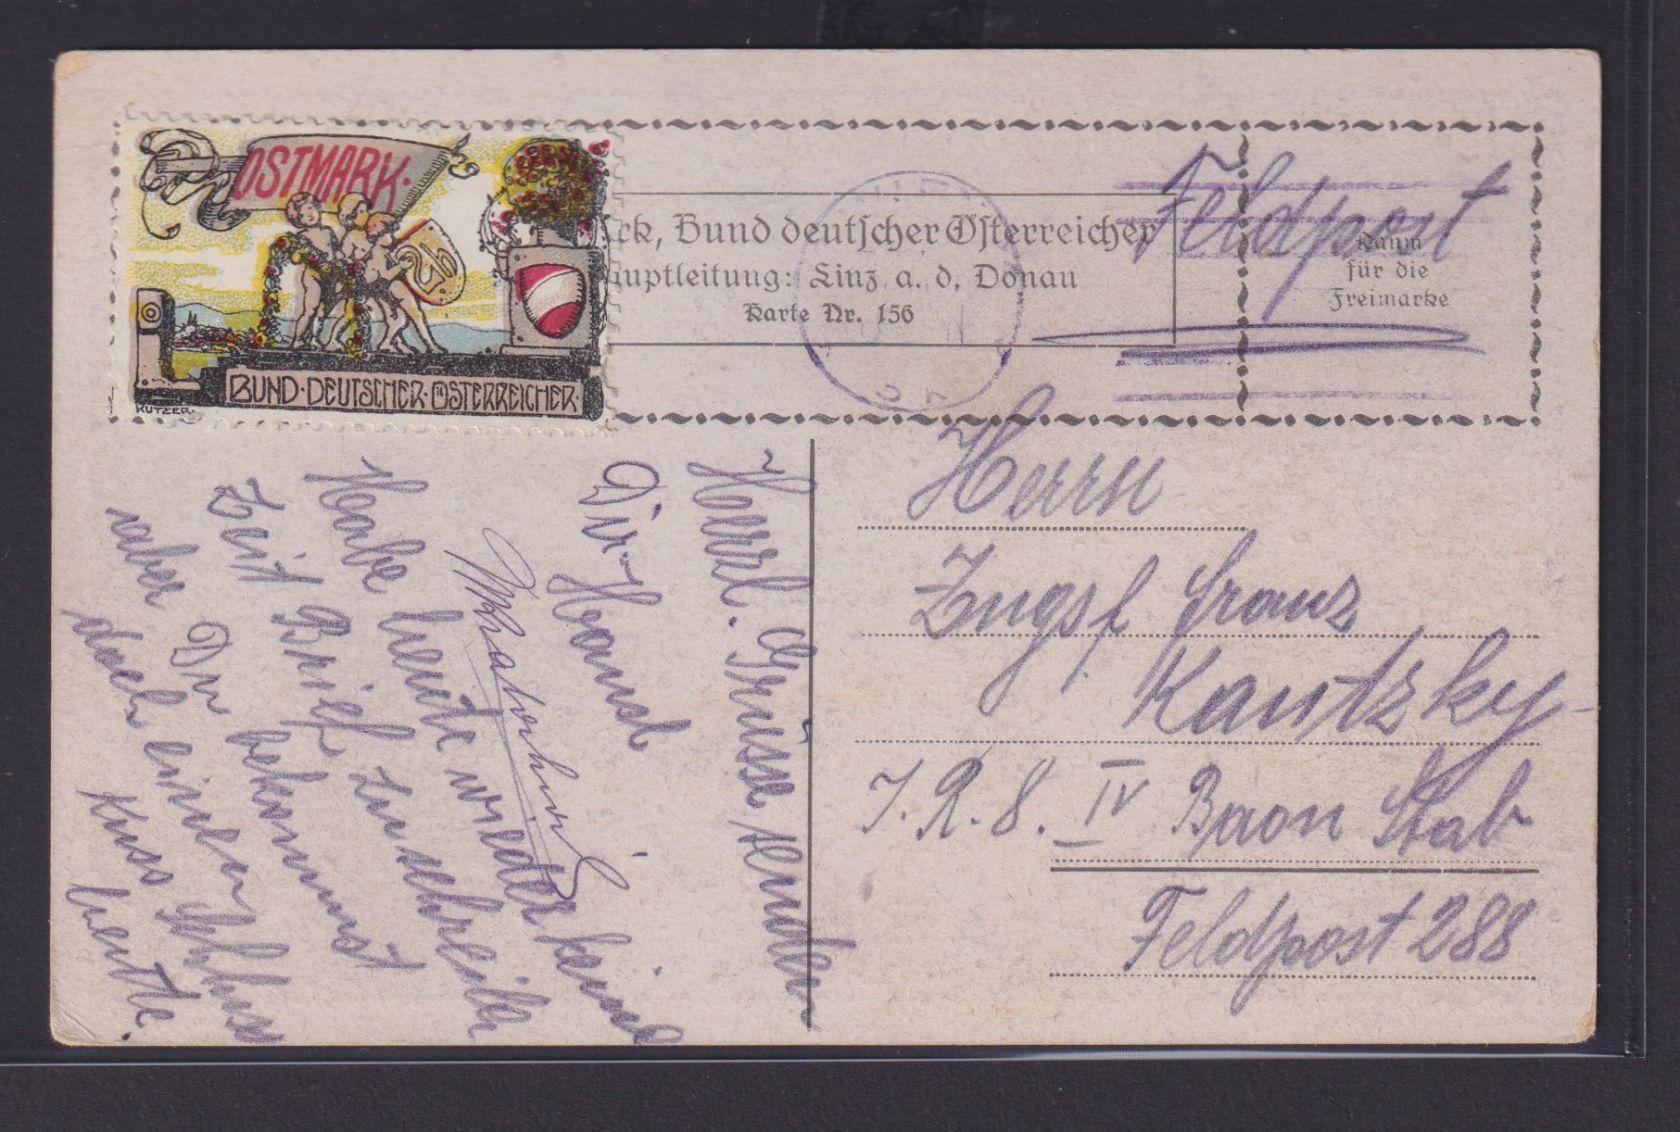 OSTMARK·
BUND·DEUTSCHER·ÖSTERREICHER·
KUTZER.
rk, Bund deutscher Österreicher
uptleitung: Linz a. d. Donau
Karte Nr. 156
Raum
für die
Freimarke
Feldpost
Herrn
Zugsf Franz
Kautzky
I. R. 8. IV Baon Stab
Feldpost 288
Herzl. Grüsse senden
Dir Hansl
Habe heute wieder keine
Zeit Brief zu schreiben
aber Du bekommst
doch einen
Kuss heute.